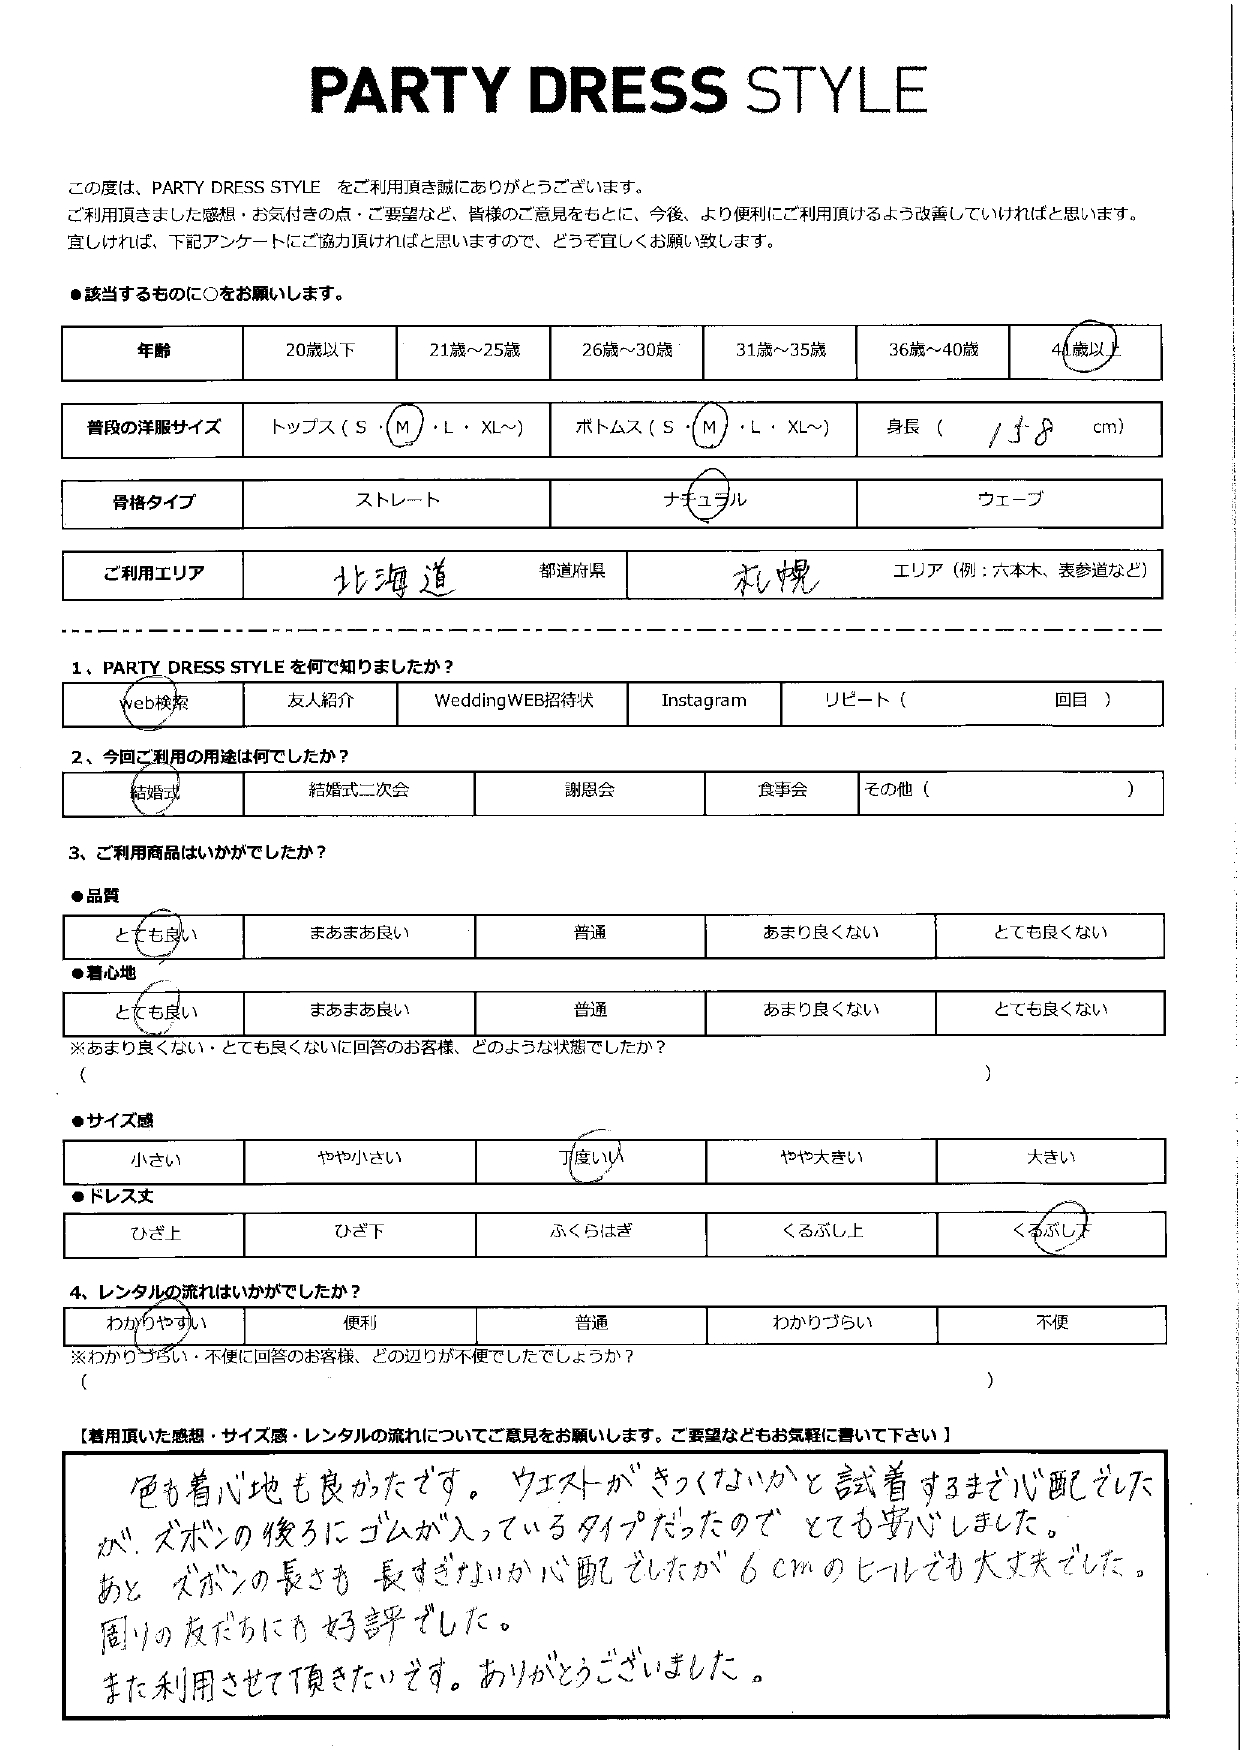 PARTY DRESS STYLE
この度は、PARTY DRESS STYLE をご利用頂き誠にありがとうございます。
ご利用頂きました感想・お気付きの点・ご要望など、皆様のご意見をもとに、今後、より便利にご利用頂けるよう改善していければと思います。
宜しければ、下記アンケートにご協力頂ければと思いますので、どうぞ宜しくお願い致します。
●該当するものに○をお願いします。
年齢 20歳以下 21歳～25歳 26歳～30歳 31歳～35歳 36歳～40歳 41歳以上
普段の洋服サイズ トップス ( S ・ M ・ L ・ XL～) ボトムス ( S ・ M ・ L ・ XL～) 身長 ( 158 cm)
骨格タイプ ストレート ナチュラル ウェーブ
ご利用エリア 北海道 都道府県 札幌 エリア（例：六本木、表参道など）
1、PARTY DRESS STYLE を何で知りましたか？
web検索 友人紹介 WeddingWEB招待状 Instagram リピート（ 回目 ）
2、今回ご利用の用途は何でしたか？
結婚式 結婚式二次会 謝恩会 食事会 その他（ ）
3、ご利用商品はいかがでしたか？
●品質
とても良い まあまあ良い 普通 あまり良くない とても良くない
●着心地
とても良い まあまあ良い 普通 あまり良くない とても良くない
※あまり良くない・とても良くないに回答のお客様、どのような状態でしたか？
（ ）
●サイズ感
小さい やや小さい 丁度いい やや大きい 大きい
●ドレス丈
ひざ上 ひざ下 ふくらはぎ くるぶし上 くるぶし下
4、レンタルの流れはいかがでしたか？
わかりやすい 便利 普通 わかりづらい 不便
※わかりづらい・不便に回答のお客様、どの辺りが不便でしたでしょうか？
（ ）
【着用頂いた感想・サイズ感・レンタルの流れについてご意見をお願いします。ご要望などもお気軽に書いて下さい】
色も着心地も良かったです。 ウエストがきつくないかと試着するまで心配でした
が、ズボンの後ろにゴムが入っているタイプだったのでとても安心しました。
あと ズボンの長さも 長すぎないか心配でしたが 6cmのヒールでも大丈夫でした。
周りの友だちにも好評でした。
また利用させて頂きたいです。ありがとうございました。